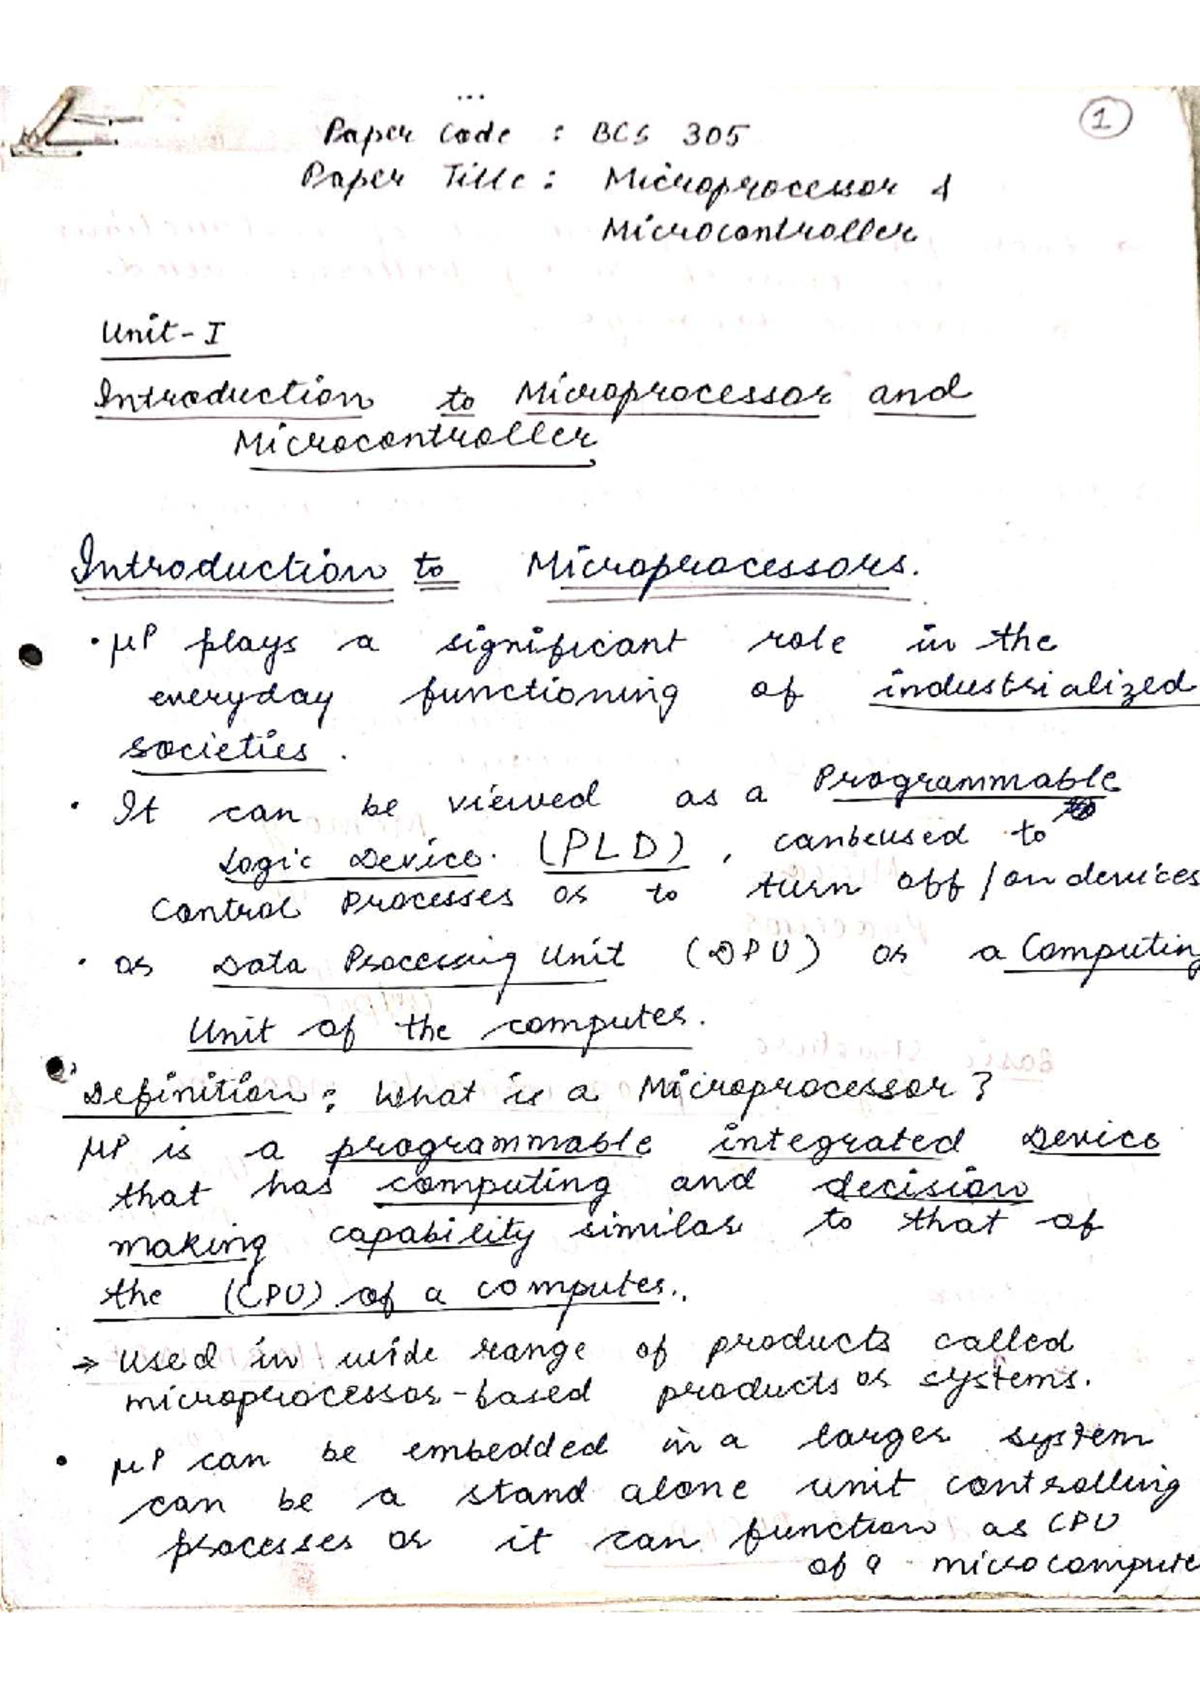 ...
1
Paper Code : BCS 305
Paper Title : Microprocessor &
Microcontroller
Unit - I
Introduction to Microprocessor and
Microcontroller
Introduction to Microprocessors.
• μP plays a significant role in the
everyday functioning of industrialized
societies.
• It can be viewed as a Programmable
Logic Device. (PLD), can be used to
Control Processes or to turn off / on devices
• as Data Processing Unit (DPU) or a Computing
Unit of the computer.
Definition: What is a Microprocessor?
μP is a programmable integrated Device
that has computing and decision
making capability similar to that of
the (CPU) of a computer..
→ Used in wide range of products called
microprocessor-based products or systems.
• μP can be embedded in a larger system
can be a stand alone unit controlling
processes or it can function as CPU
of a microcompute